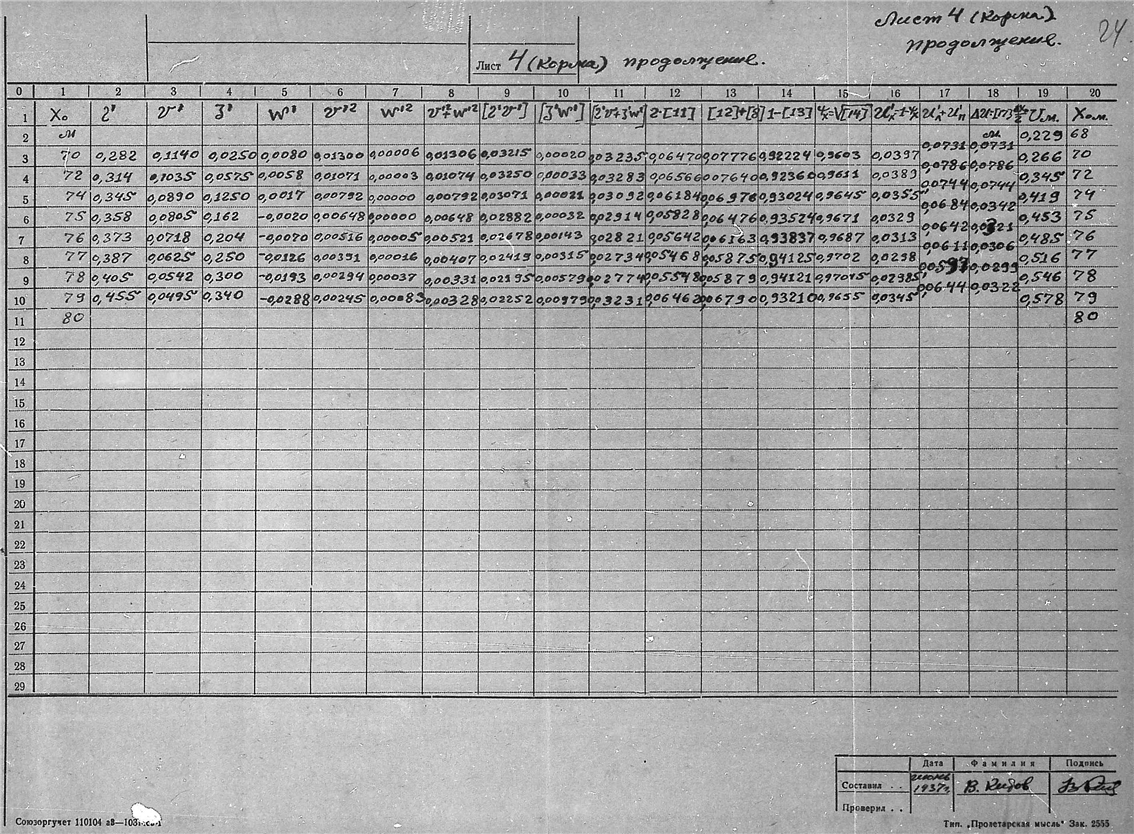 Лист 4 (Корма)
продолжение.
24
Лист 4 (Корма) продолжение.
0 1 2 3 4 5 6 7 8 9 10 11 12 13 14 15 16 17 18 19 20
1 X₀ η' v' ζ' w' v'² w'² v'²+w'² [η'v'] [ζ'w'] [η'v'+ζ'w'] 2·[11] [12]+[8] 1-[13] =√[14] U м. X₀ м.
2 м м 0,229 68
0,0731 0,0731
3 70 0,282 0,1140 0,0250 0,0080 0,01300 0,00006 0,01306 0,03215 0,00020 0,03235 0,06470 0,07776 0,92224 0,9603 0,0397 0,266 70
0,0786 0,0786
4 72 0,314 0,1035 0,0575 0,0058 0,01071 0,00003 0,01074 0,03250 0,00033 0,03283 0,06566 0,07640 0,92360 0,9611 0,0389 0,345 72
0,0744 0,0744
5 74 0,345 0,0890 0,1250 0,0017 0,00792 0,00000 0,00792 0,03071 0,00021 0,03092 0,06184 0,06976 0,93024 0,9645 0,0355 0,419 74
0,0684 0,0342
6 75 0,358 0,0805 0,162 -0,0020 0,00648 0,00000 0,00648 0,02882 0,00032 0,02914 0,05828 0,06476 0,93524 0,9671 0,0329 0,453 75
0,0642 0,0321
7 76 0,373 0,0718 0,204 -0,0070 0,00516 0,00005 0,00521 0,02678 0,00143 0,02821 0,05642 0,06163 0,93837 0,9687 0,0313 0,485 76
0,0611 0,0306
8 77 0,387 0,0625 0,250 -0,0126 0,00391 0,00016 0,00407 0,02419 0,00315 0,02734 0,05468 0,05875 0,94125 0,9702 0,0298 0,516 77
0,0597 0,0299
9 78 0,405 0,0542 0,300 -0,0193 0,00294 0,00037 0,00331 0,02195 0,00579 0,02774 0,05548 0,05879 0,94121 0,97015 0,02985 0,546 78
0,0644 0,0322
10 79 0,455 0,0495 0,340 -0,0288 0,00245 0,00083 0,00328 0,02252 0,00979 0,03231 0,06462 0,06790 0,93210 0,9655 0,0345 0,578 79
11 80 80
12
13
14
15
16
17
18
19
20
21
22
23
24
25
26
27
28
29
Дата Фамилия Подпись
Составил . . июнь 1937 г. В. Кидов
Проверил . .
Союзоргучет 110104
Тип. „Пролетарская мысль" Зак. 2555